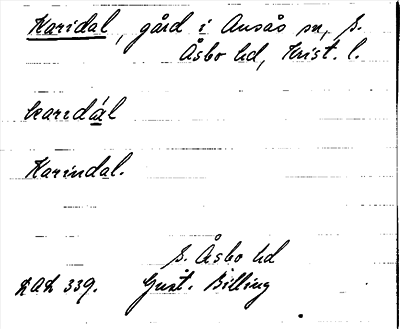 Karidal, gård i Ausås sn, S.
Åsbo hd, Krist. l.
karedál
Karindal.
S. Åsbo hd
LAL 339. Gust. Billing